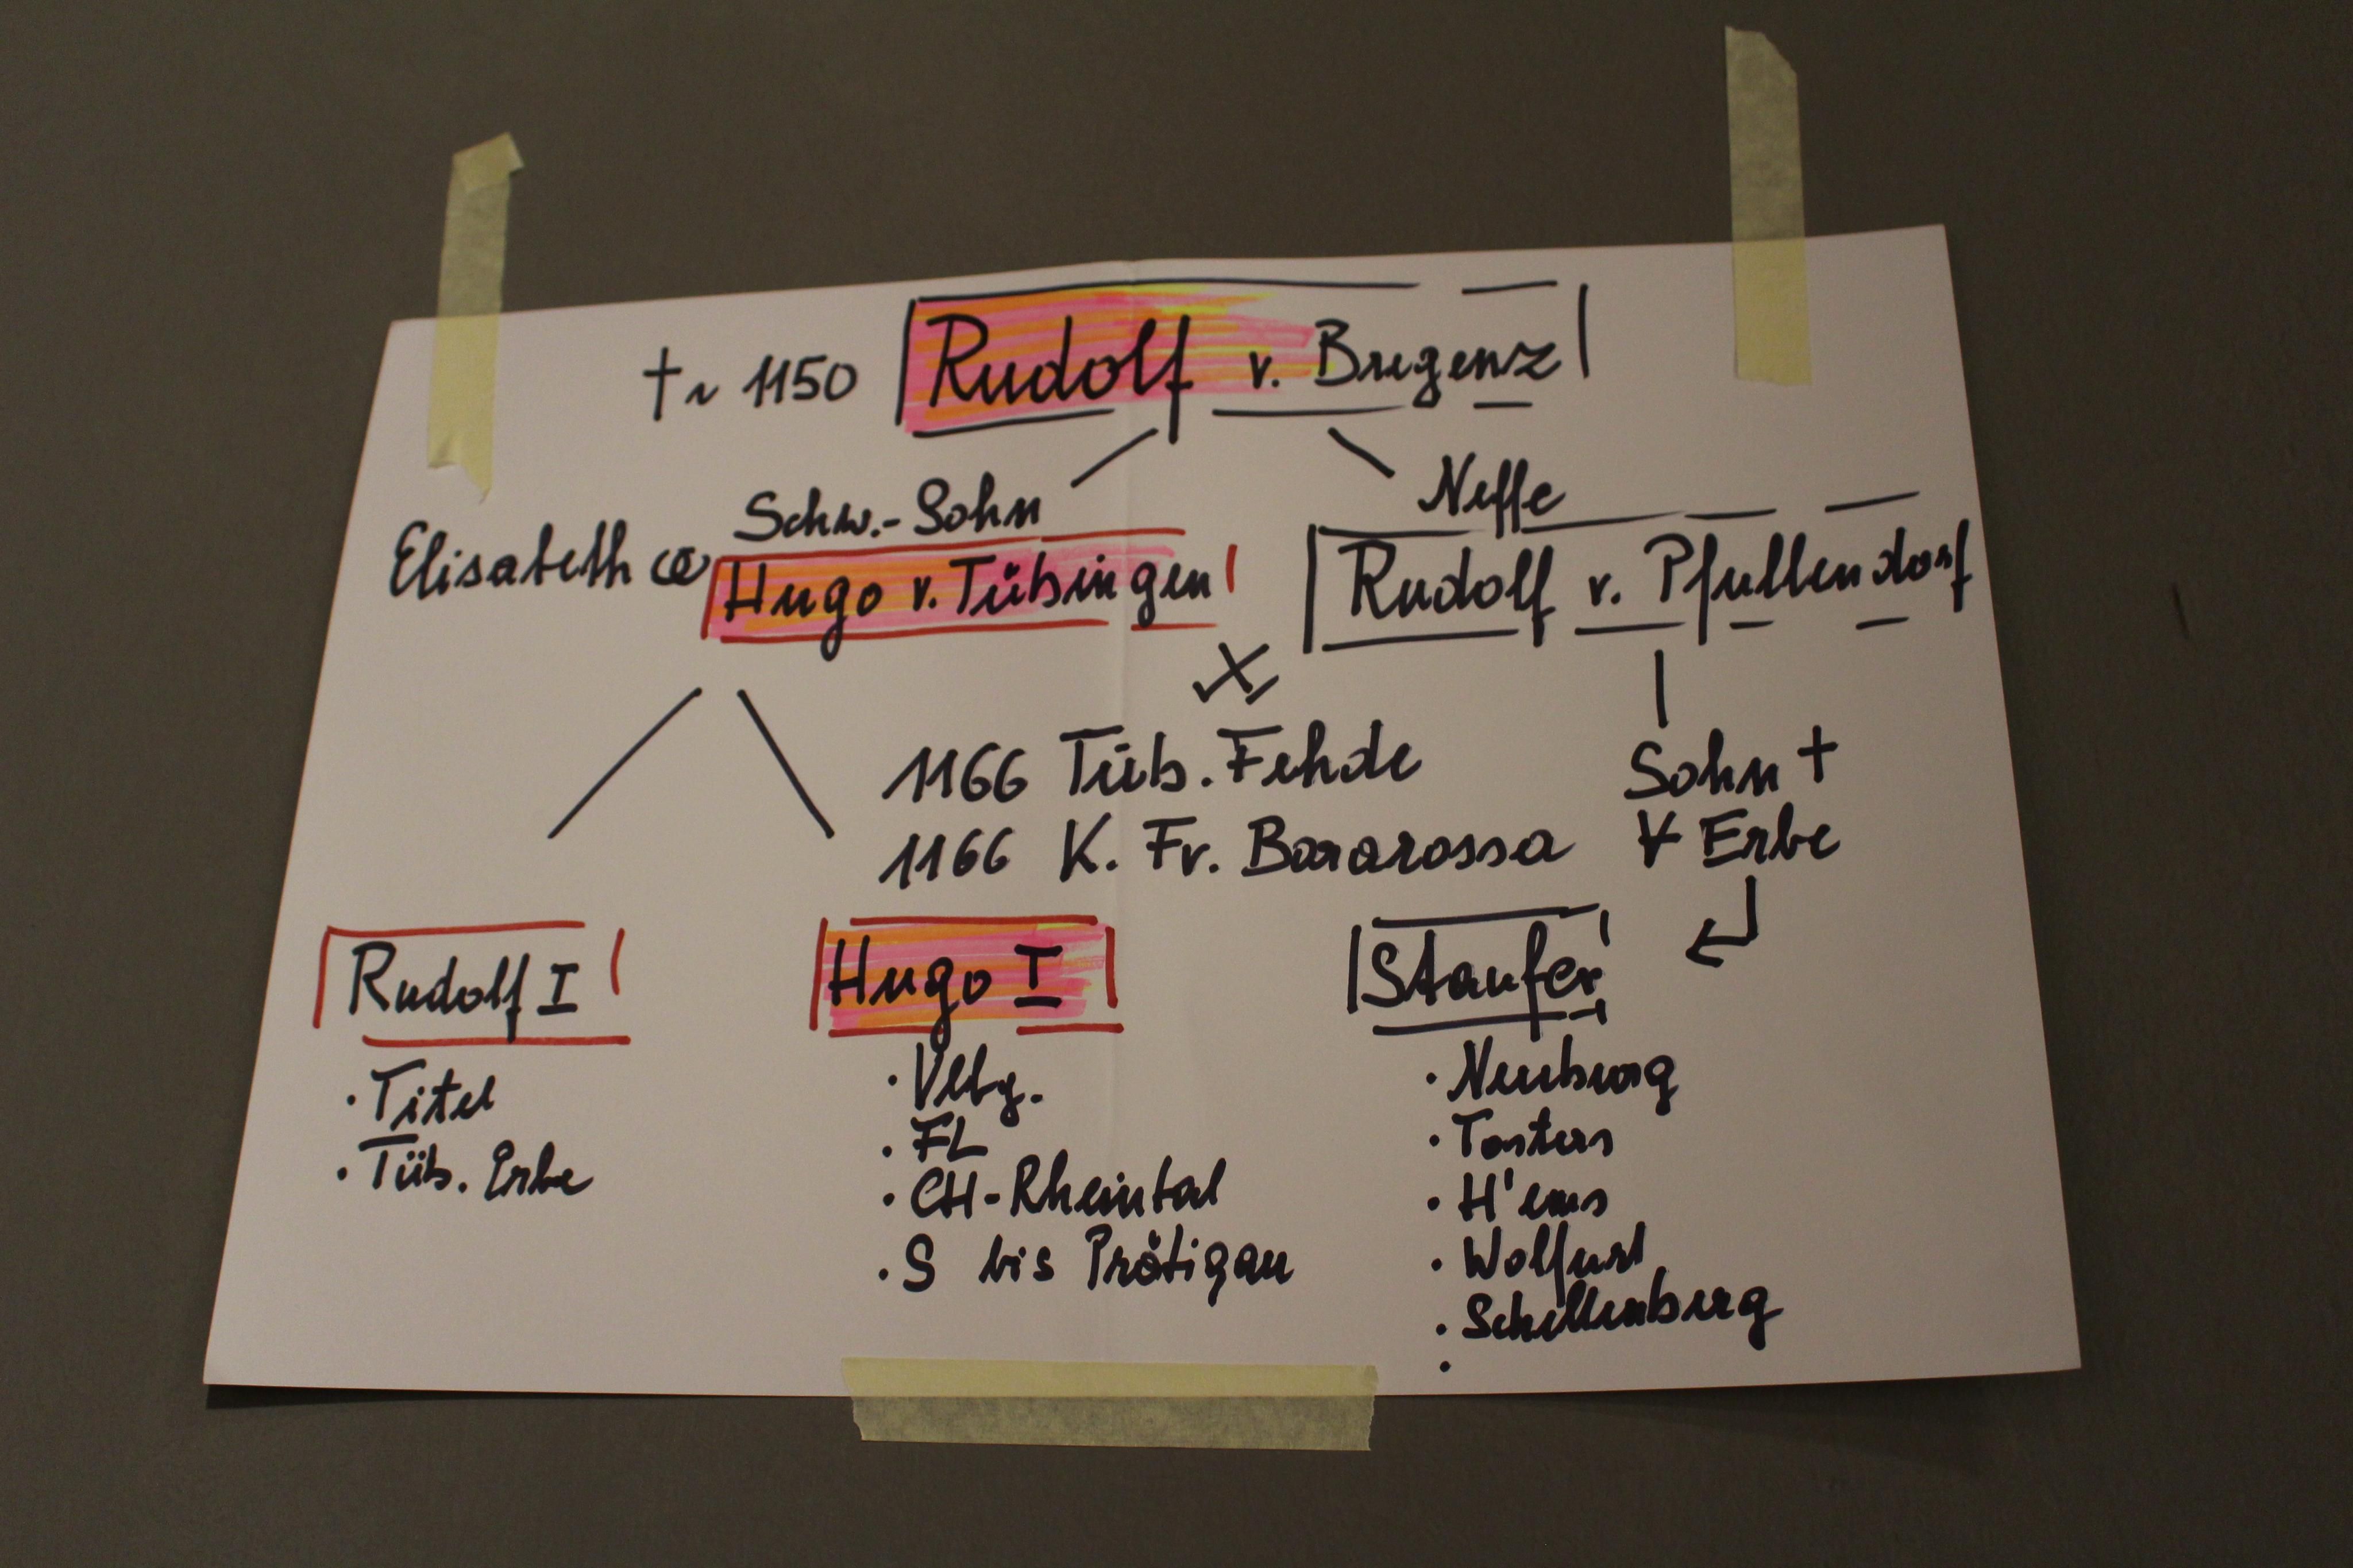 † ~ 1150 Rudolf v. Bregenz
Schw.-Sohn
Neffe
Elisabeth ⚭ Hugo v. Tübingen
Rudolf v. Pfullendorf
1166 Tüb. Fehde
1166 K. Fr. Bararossa
Sohn †
Erbe
Rudolf I
· Titel
· Tüb. Erbe
Hugo I
· Vlbg.
· FL
· CH-Rheintal
· S bis Prätigau
Staufer
· Neuburg
· Tosters
· H'ems
· Wolfurt
· Schellenberg
·